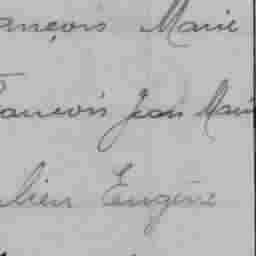 ançois Marie
François Jean Marie
lien Eugène